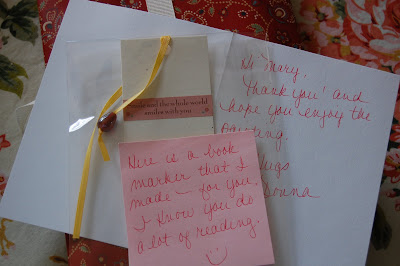 and the whole world
smiles with you
Hi Mary,
Thank you! and
hope you enjoy the
painting.
Hugs
Donna
Here is a book
marker that I
made – for you.
I know you do
a lot of reading.